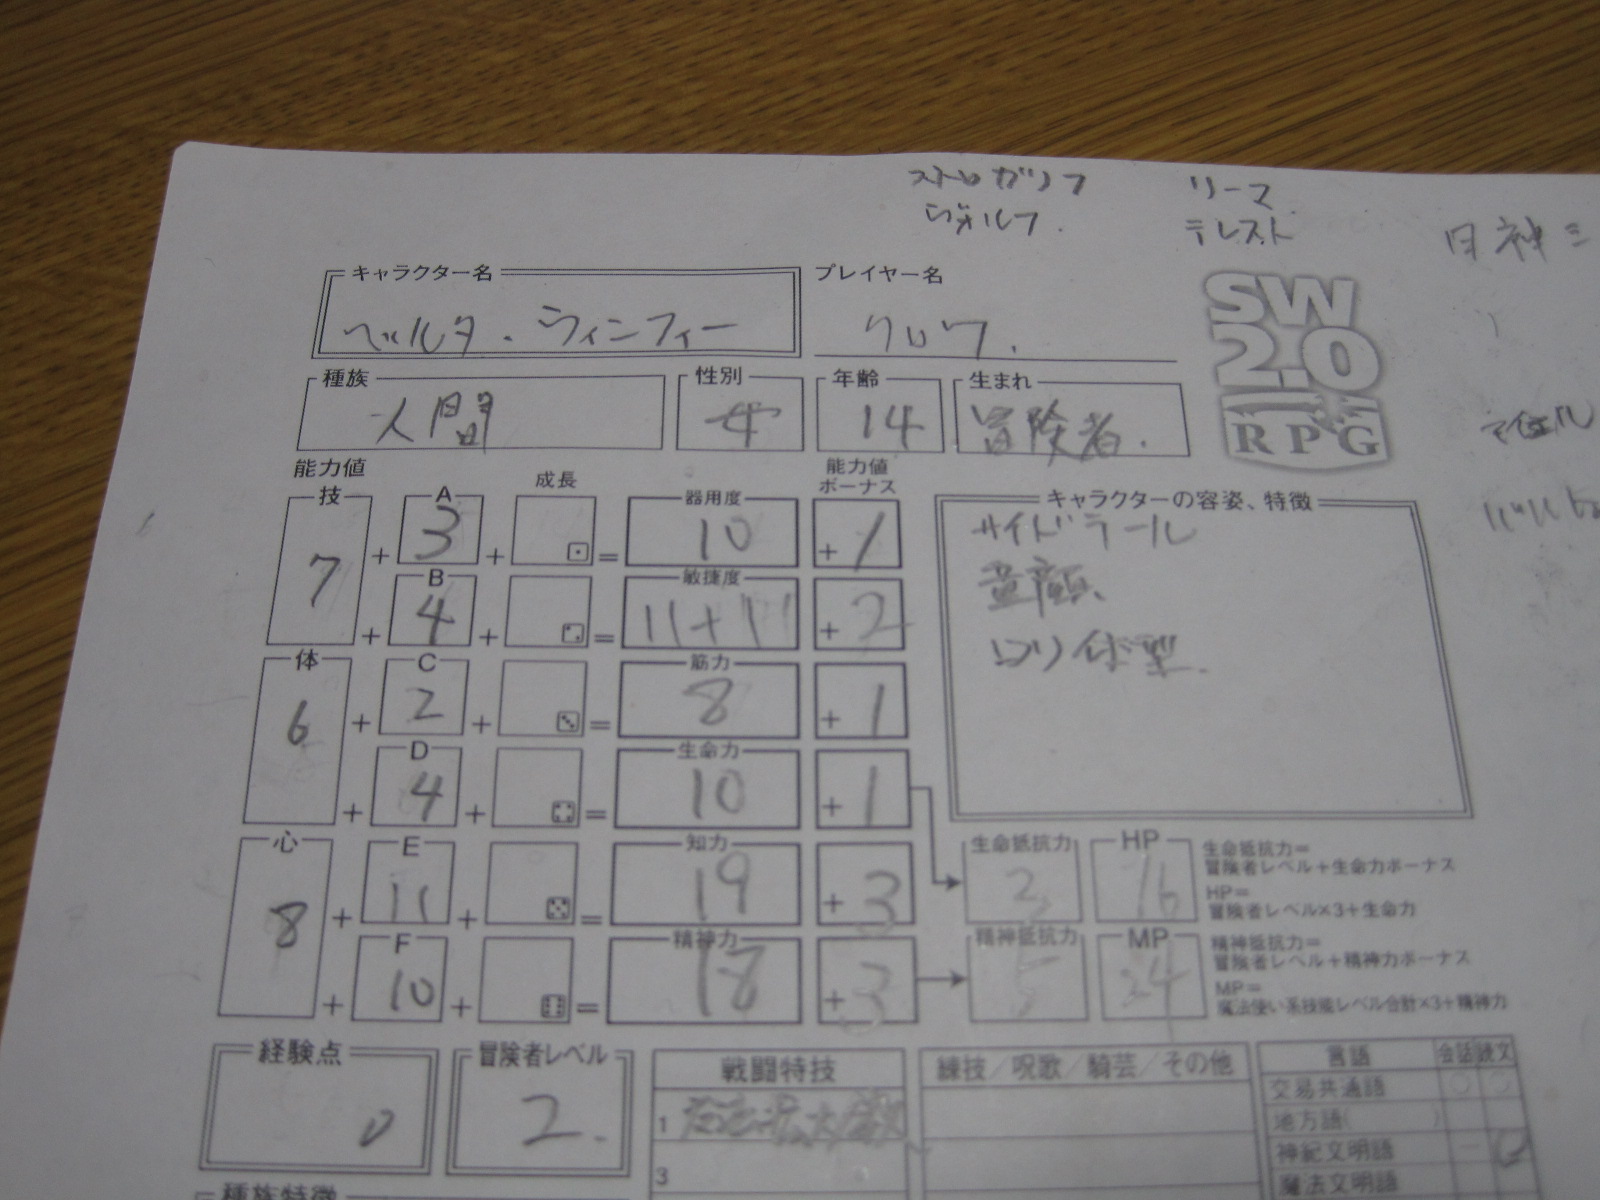 ストロガノフ リーマ
ヴォルフ. テレスト 日神ミ
キャラクター名 プレイヤー名
ベルタ・ウィンフィー クロワ.
SW
2.0
RPG
種族 性別 年齢 生まれ
人間 女 14 冒険者.
能力値 成長 能力値
ボーナス
技 A 器用度 キャラクターの容姿、特徴
7 + 3 + = 10 + 1 サイドテール
B 敏捷度 童顔、
+ 4 + = 11+11 + 2 ロリ体型.
体 C 筋力
6 + 2 + = 8 + 1
D 生命力
+ 4 + = 10 + 1
心 E 知力 生命抵抗力 HP 生命抵抗力=
冒険者レベル+生命力ボーナス
8 + 11 + = 19 + 3 3 16 HP=
冒険者レベル×3+生命力
F 精神力 精神抵抗力 MP 精神抵抗力=
冒険者レベル+精神力ボーナス
+ 10 + = 18 + 3 5 24 MP=
魔法使い系技能レベル合計×3+精神力
経験点 冒険者レベル 戦闘特技 練技/呪歌/騎芸/その他 言語 会話 読文
0 2. 交易共通語 ○ ○
1 地方語( )
神紀文明語 −
3 魔法文明語
種族特徴